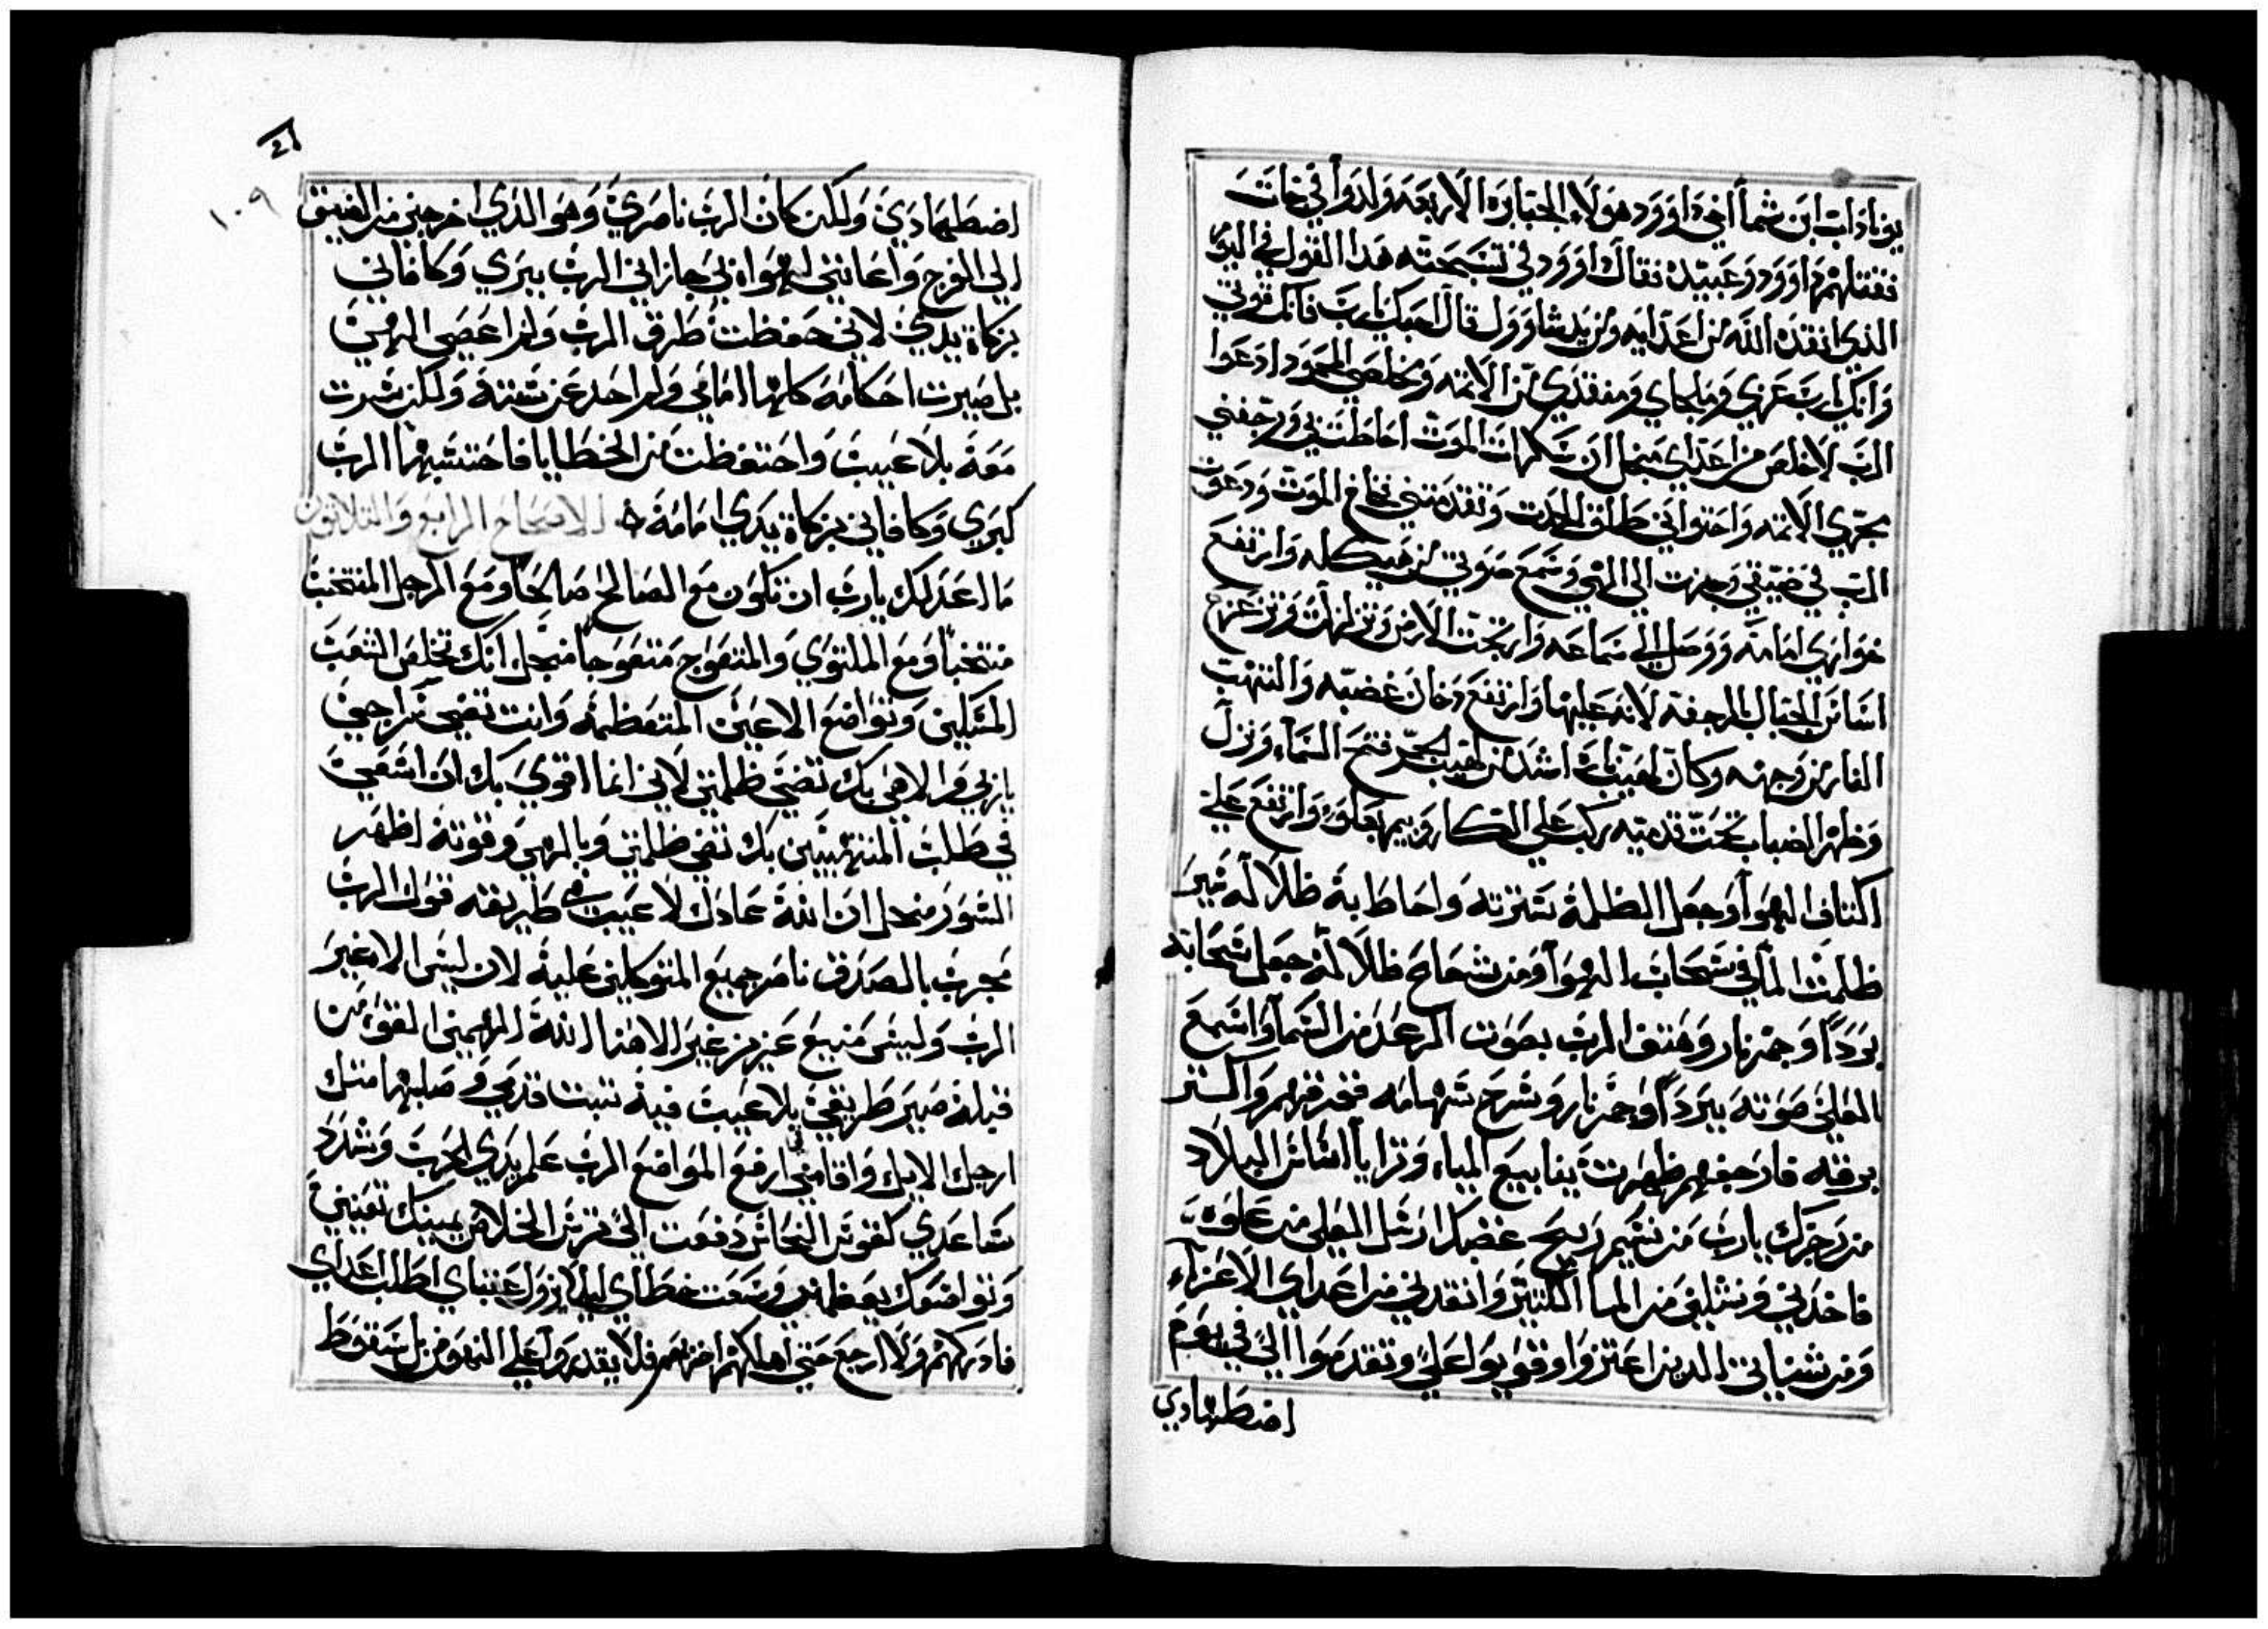 يوناداب ابن شما اخي داوود هولاء الجبابره الاربعه ولدوا في خات
فقتلهم داوود وعبيده فقال داوود في تسبحته هدا القول في اليوم
الذي انقده الله من اعدايه ومن يد شاوول قال احبك يا رب فانك قوتي
وانك يا رب عزي وملجاي ومنقدي من الائمه ومخلصي المحمود ادعوا
الرب لاخلص من اعداي منجل ان سكرات الموت احاطت بي ورجفني
مجري الاتمه واحتواني طلق الموت وتقدمتني فخاخ الموت ودعوت
الرب في ضيقي وجرت الي الهي وسمع صوتي من هيكله وارتفع
خواري امامه ووصل الي سماعه وارتجت الارض وتزلزلت وتزعزع
اساس الجبال المرجفه لانه عليها وارتفع دخان غضبه والتهبت
النار من وجهه وكان لهيبها اشد من لهيب الجمر فتح السماء ونزل
وظهر الضباب تحت قدميه ركب علي الكاروبيم بعلوه وارتفع علي
اكتاف الهوا وجعل الظلمة سترته واحاط به ظلاله ثير
ظلمت الما في سحاب الهوا ومن شحاح ظلاله جعل سحابه
بردا وجمر نار وهتف الرب بصوت الرعد من السما واسمع
العلي صوته ببردا وجمر نار وشرح سهامه فخرقهم واكتر
برقه فارجفهم ظهرت ينابيع المياه وترايا اساس البلاد
من زجرك يارب من نسيم ريح غضبك ارسل العلي من علوه
فاخدني ونشلني من الما الكتير وانقدني من اعداي الاعزاء
ومن شنياتي الدين اعتزوا وقويوا علي وتقدموا الي في يوم
اضطهادي
١٠٩
اضطهادي ولكن كان الرب ناصري وهو الدي اخرجني من الضيق
الي الفرج واعانني لهواه بي جازاني الرب ببري وكافاني
بزكاة يدي لاني حفظت طرق الرب ولم اعصي الهي
بل صيرت احكامه كلها امامي ولم احد عن سنته ولكن سرت
معه بلا عيب واحتفظت من الخطايا فاحتسبها الرب
كبري وكافاني بزكاة يدي امامه الاصحاح الرابع والتلاتون
ما اعدلك يارب ان تكون مع الصالح صالحا ومع الرجل المنتخب
منتخبا ومع الملتوي والمتعوج متعوجا منجل انك تخلص الشعب
المتكلين وتواضع الاعين المتعظمة وانت تضي سراجي
ياربي والاهي بك تضي ظلمتي لاني انما اقوي بك ان اسعي
في طلب المنتهبين بك تضي ظلمتي وبالهي وقوته اظهر
السور منجل ان الله عادل لا عيب في طريقه قول الرب
مجرب بالصدق ناصر جميع المتوكلين عليه لان ليس الا غير
الرب وليس منيع عزيز غير الاهنا الله المهيمن القوا من
قبله صير طريقي بلا عيب فيه تبت قدمي وصلبها متل
ارجل الايل واقامني ارفع المواضع الرب علم يدي الحرب وشدد
ساعدي كقوس النحاس دفعت الي ترس الخلاص يمينك تعينني
وتواضعك يعظمني وسعت خطاي ليلا يزول عقباي اطلب اعداي
فادركهم ولا ارجع حتي اهلكهم اضربهم فلا يقدروا علي النهوض بل سقوط